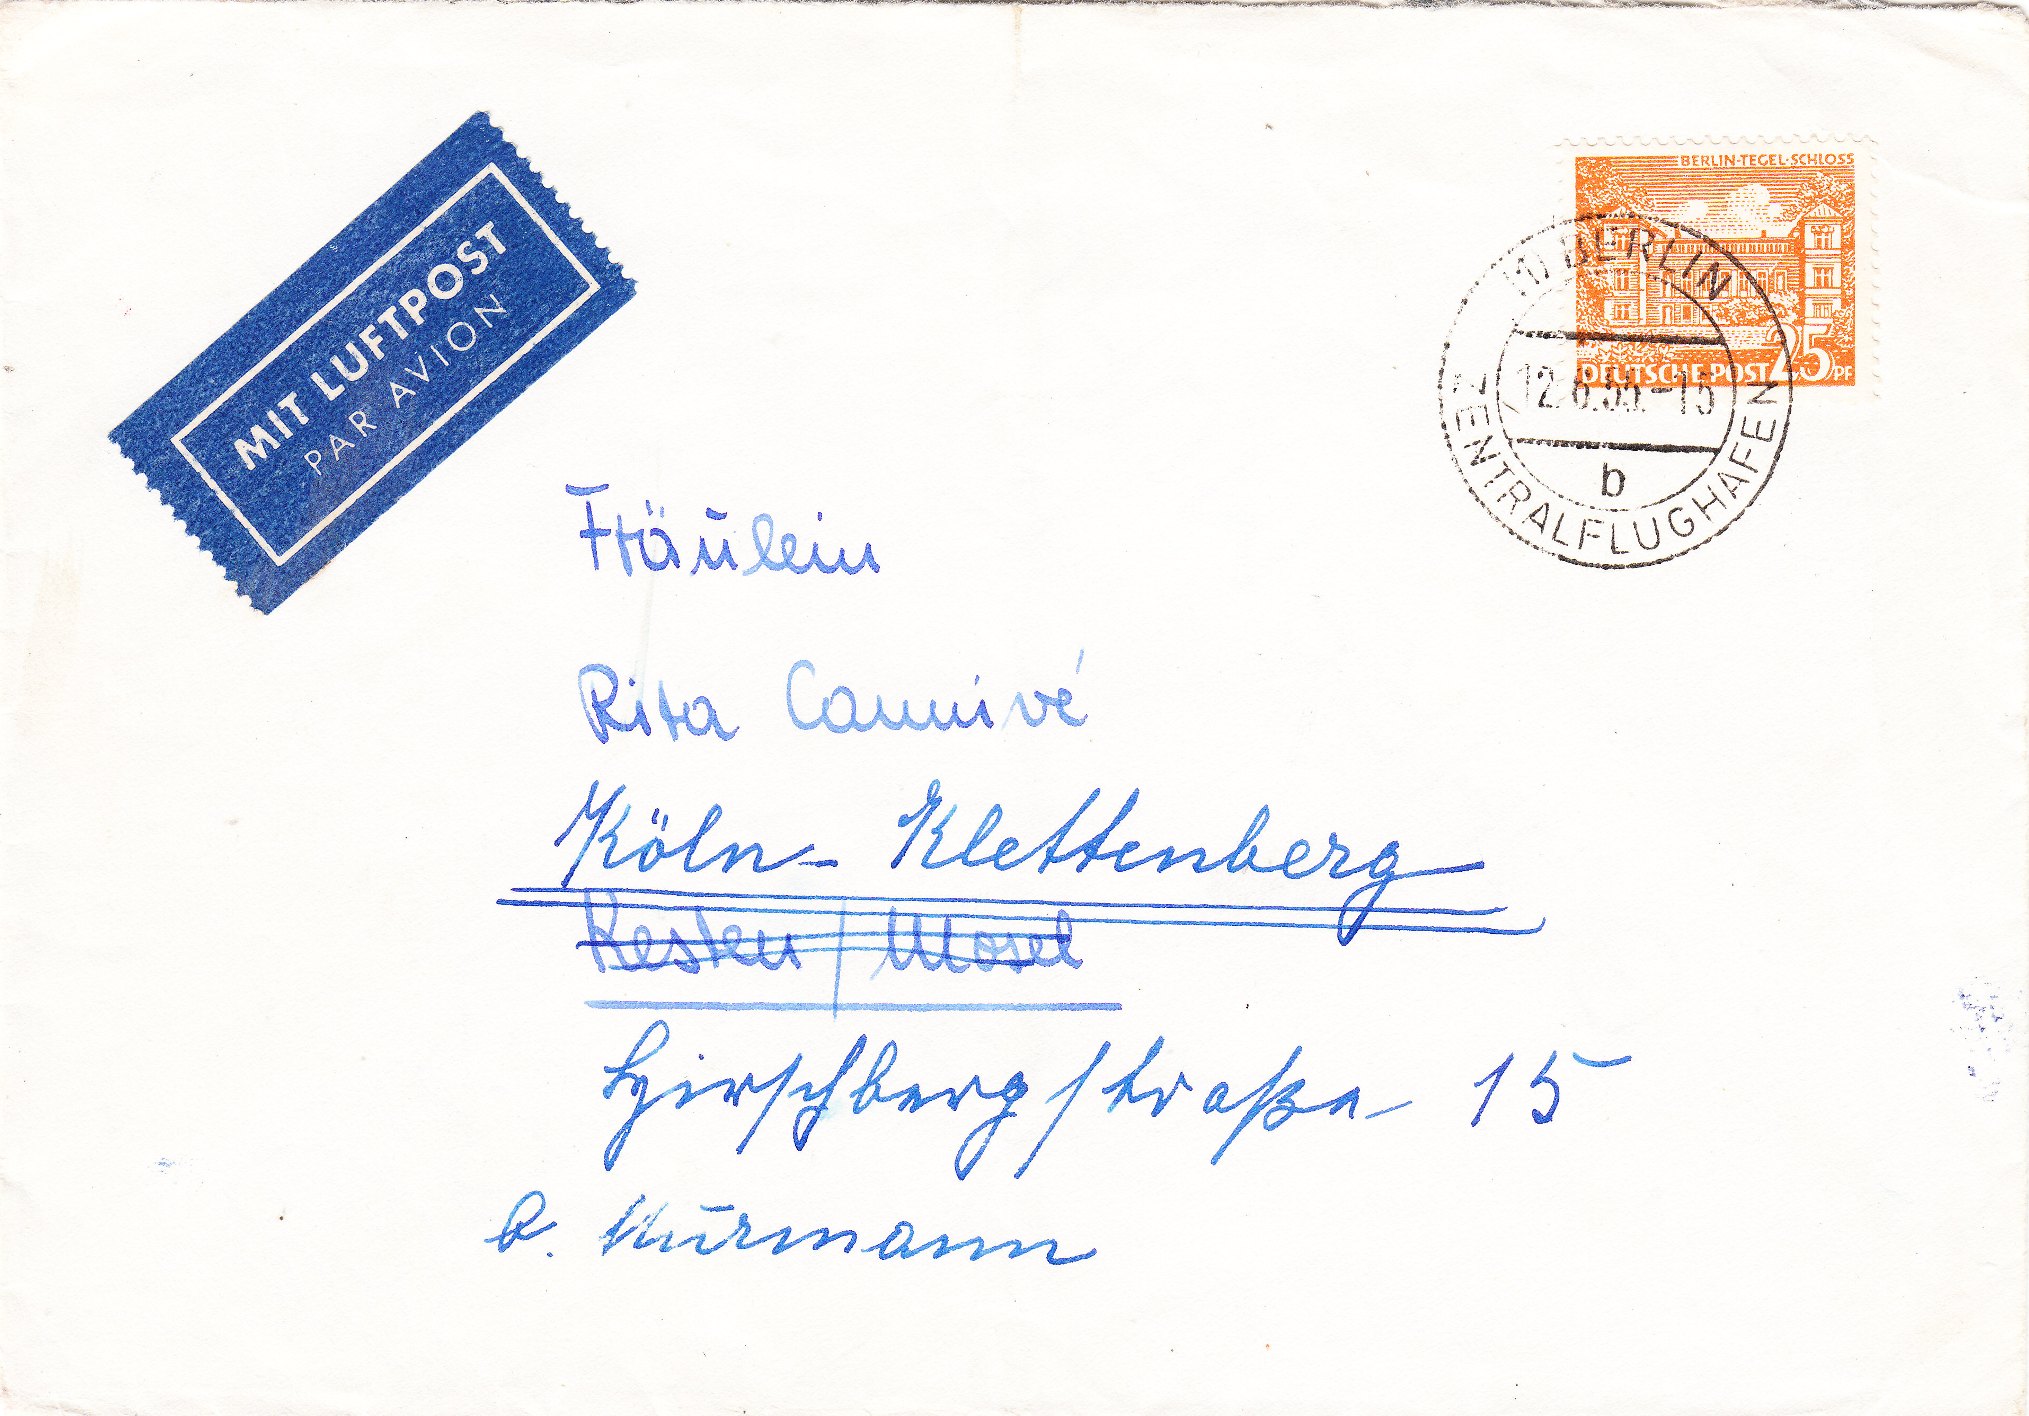 MIT LUFTPOST
PAR AVION
BERLIN-TEGEL-SCHLOSS
DEUTSCHE·POST 25 PF
(1) BERLIN
12.6.55.-15
b
ZENTRALFLUGHAFEN
Fräulein
Rita Cannivé
Köln-Klettenberg
Kesten / Mosel
Hirschbergstraße 15
b. Murmann